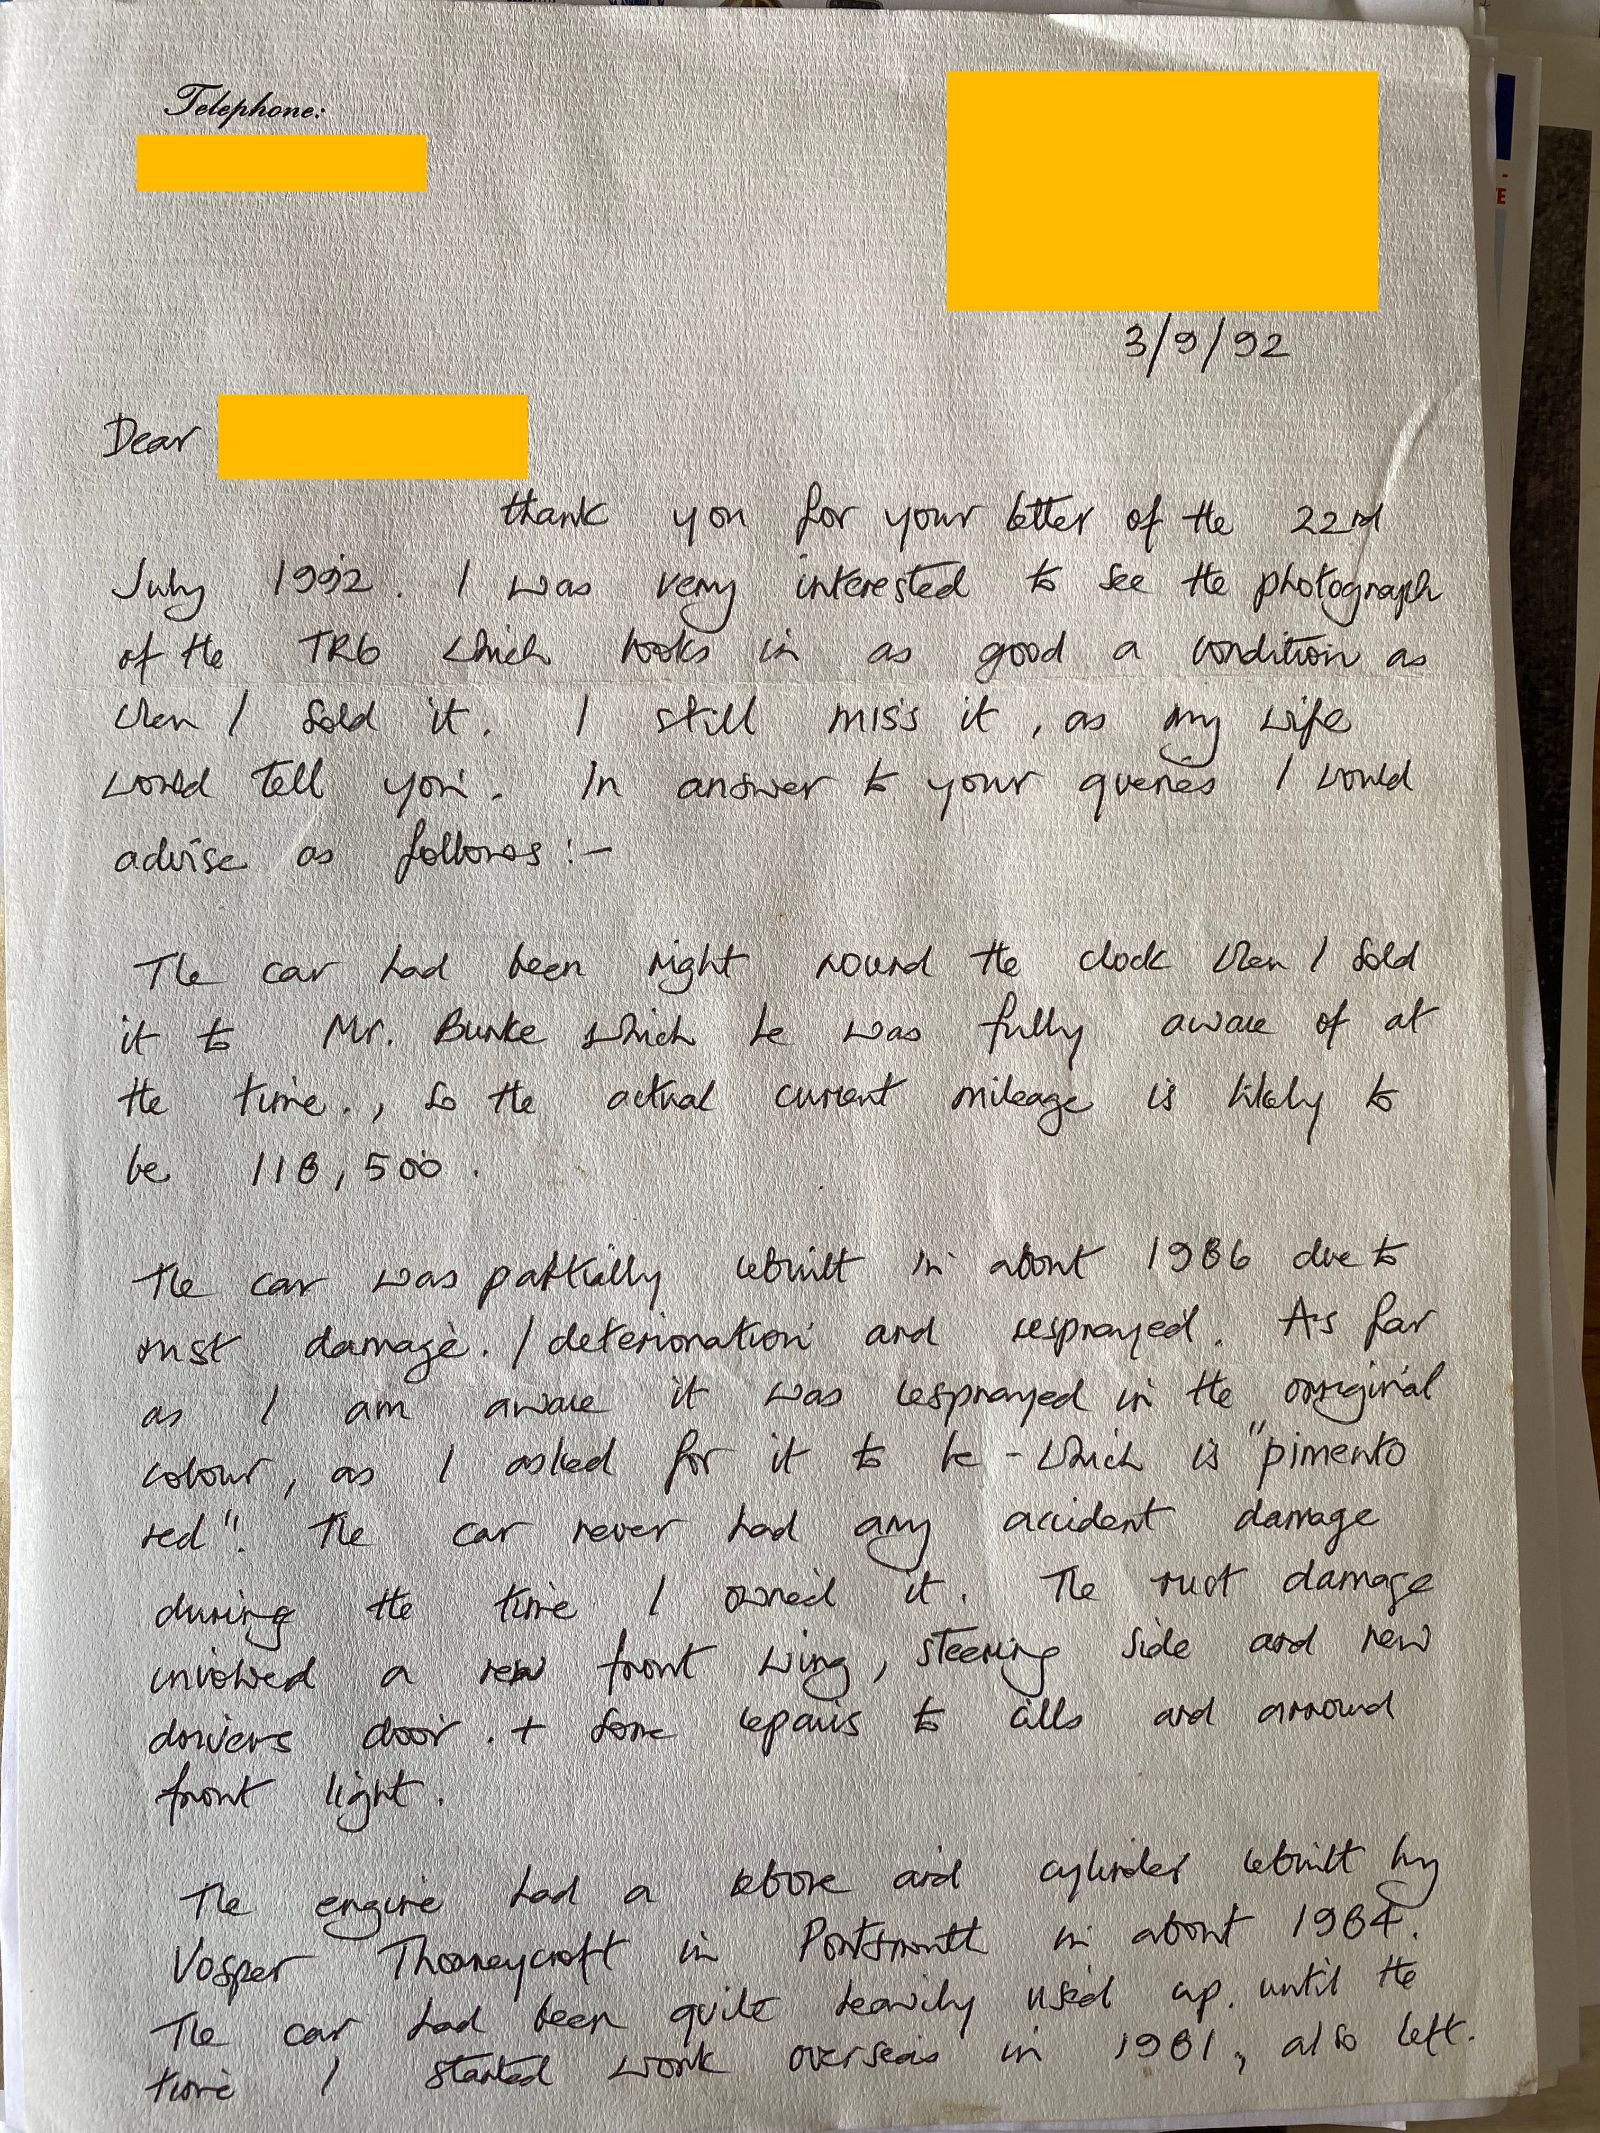 Telephone:
3/9/92
Dear
thank you for your letter of the 22nd
July 1992. I was very interested to see the photograph
of the TR6 which looks in as good a condition as
when I sold it. I still miss it, as my wife
would tell you. In answer to your queries I would
advise as follows:-
The car had been right round the clock when I sold
it to Mr. Burke which he was fully aware of at
the time., so the actual current mileage is likely to
be 118,500.
The car was partially rebuilt in about 1986 due to
rust damage. / deterioration and resprayed. As far
as I am aware it was resprayed in the original
colour, as I asked for it to be - which is "pimento
red". The car never had any accident damage
during the time I owned it. The rust damage
involved a new front wing, steering side and new
drivers door. + some repairs to cills and arround
front light.
The engine had a rebore and cylinder rebuilt by
Vosper Thorneycroft in Portsmouth in about 1984.
The car had been quite heavily used up. until the
time I started work overseas in 1981, also left.